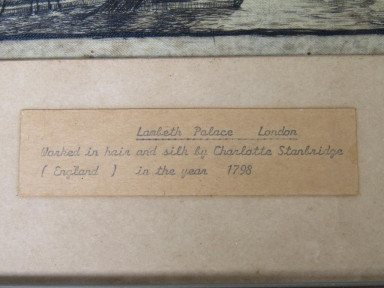 Lambeth Palace London
Worked in hair and silk by Charlotte Stanbridge
( England ) in the year 1798